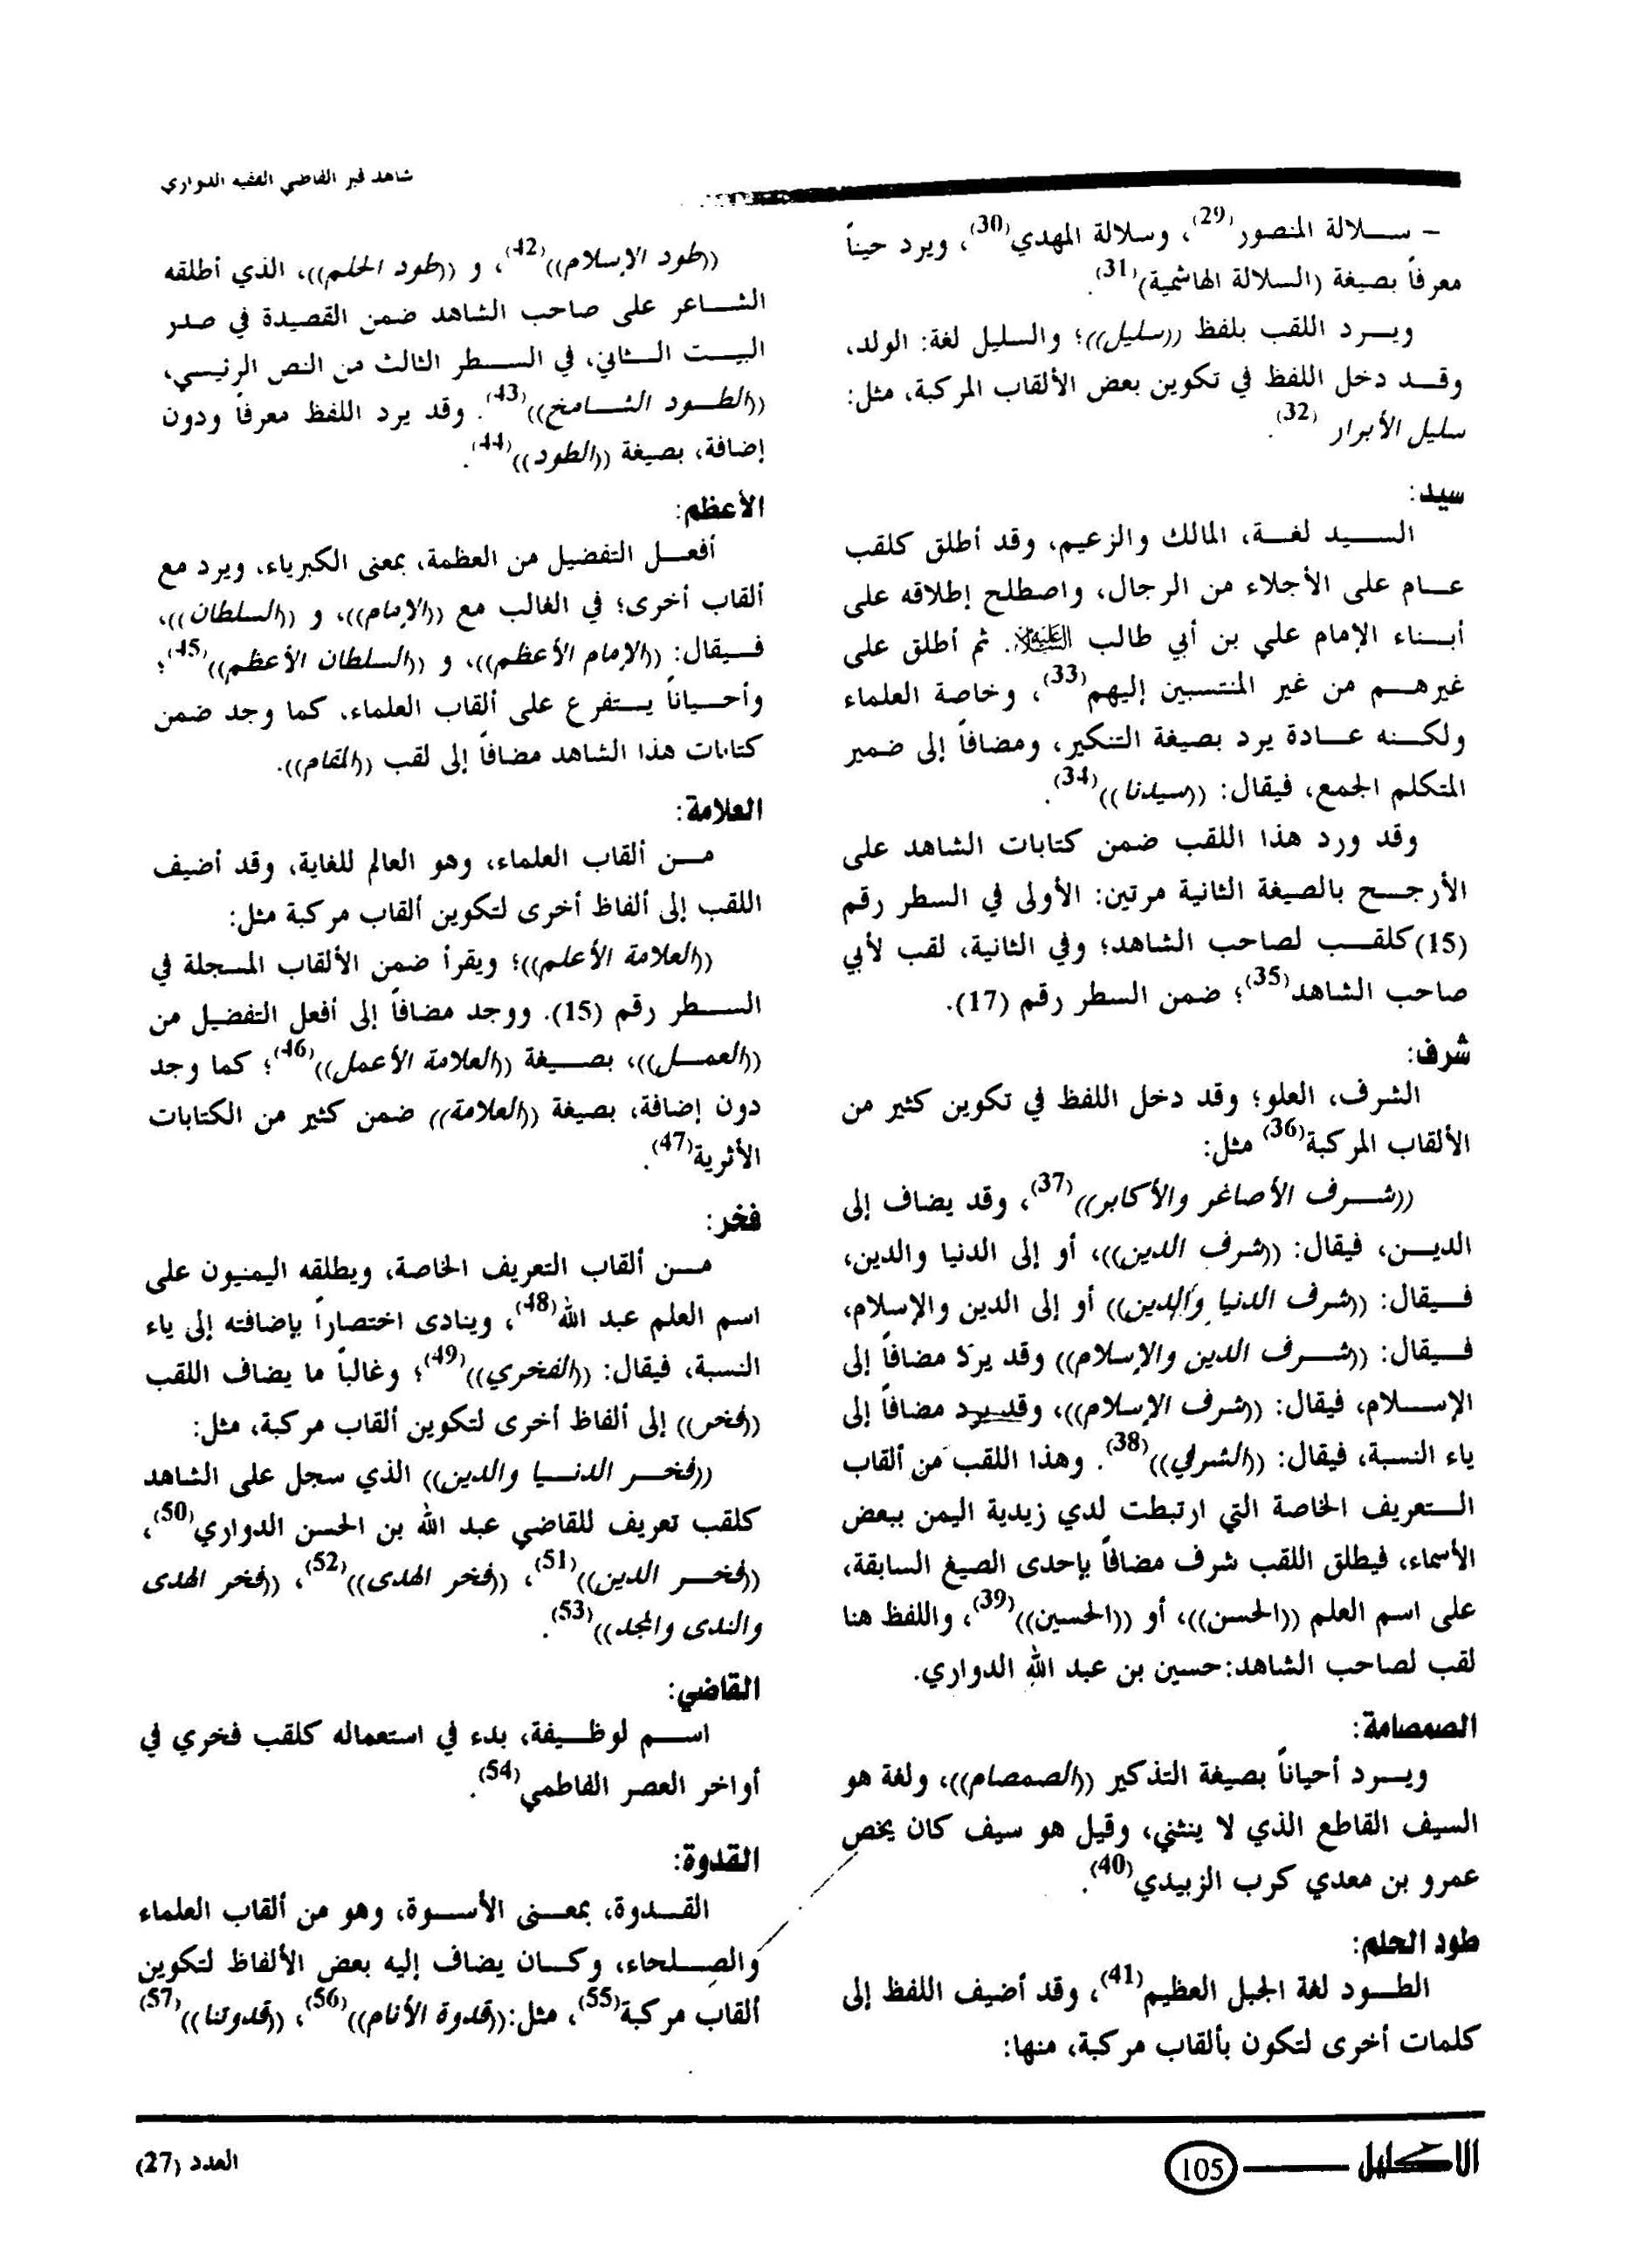 شاهد قبر القاضي الفقيه الدواري
– سلالة المنصور(29)، وسلالة المهدي(30)، ويرد حيناً
معرفاً بصيغة (السلالة الهاشمية)(31).
ويرد اللقب بلفظ ((سليل))؛ والسليل لغة: الولد،
وقد دخل اللفظ في تكوين بعض الألقاب المركبة، مثل:
سليل الأبرار (32).
سيد:
السيد لغة، المالك والزعيم، وقد أطلق كلقب
عام على الأجلاء من الرجال، واصطلح إطلاقه على
أبناء الإمام علي بن أبي طالب عليه السلام. ثم أطلق على
غيرهم من غير المنتسبين إليهم(33)، وخاصة العلماء
ولكنه عادة يرد بصيغة التنكير، ومضافاً إلى ضمير
المتكلم الجمع، فيقال: ((سيدنا))(34).
وقد ورد هذا اللقب ضمن كتابات الشاهد على
الأرجح بالصيغة الثانية مرتين: الأولى في السطر رقم
(15)كلقب لصاحب الشاهد؛ وفي الثانية، لقب لأبي
صاحب الشاهد(35)؛ ضمن السطر رقم (17).
شرف:
الشرف، العلو؛ وقد دخل اللفظ في تكوين كثير من
الألقاب المركبة(36) مثل:
((شرف الأصاغر والأكابر))(37)، وقد يضاف إلى
الدين، فيقال: ((شرف الدين))، أو إلى الدنيا والدين،
فيقال: ((شرف الدنيا والدين)) أو إلى الدين والإسلام،
فيقال: ((شرف الدين والإسلام)) وقد يرد مضافاً إلى
الإسلام، فيقال: ((شرف الإسلام))، وقد يرد مضافاً إلى
ياء النسبة، فيقال: ((الشرفي))(38). وهذا اللقب من ألقاب
التعريف الخاصة التي ارتبطت لدي زيدية اليمن ببعض
الأسماء، فيطلق اللقب شرف مضافاً بإحدى الصيغ السابقة،
على اسم العلم ((الحسن))، أو ((الحسين))(39)، واللفظ هنا
لقب لصاحب الشاهد:حسين بن عبد الله الدواري.
الصمصامة:
ويرد أحياناً بصيغة التذكير ((الصمصام))، ولغة هو
السيف القاطع الذي لا ينثني، وقيل هو سيف كان يخص
عمرو بن معدي كرب الزبيدي(40).
طود الحلم:
الطود لغة الجبل العظيم(41)، وقد أضيف اللفظ إلى
كلمات أخرى لتكون بألقاب مركبة، منها:
((طود الإسلام))(42)، و ((طود الحلم))، الذي أطلقه
الشاعر على صاحب الشاهد ضمن القصيدة في صدر
البيت الثاني، في السطر الثالث من النص الرئيسي،
((الطود الشامخ))(43). وقد يرد اللفظ معرفاً ودون
إضافة، بصيغة ((الطود))(44).
الأعظم:
أفعل التفضيل من العظمة، بمعنى الكبرياء، ويرد مع
ألقاب أخرى؛ في الغالب مع ((الإمام))، و ((السلطان))،
فيقال: ((الإمام الأعظم))، و ((السلطان الأعظم))(45)؛
وأحياناً يتفرع على ألقاب العلماء، كما وجد ضمن
كتابات هذا الشاهد مضافاً إلى لقب ((المقام)).
العلامة:
من ألقاب العلماء، وهو العالم للغاية، وقد أضيف
اللقب إلى ألفاظ أخرى لتكوين ألقاب مركبة مثل:
((العلامة الأعلم))؛ ويقرأ ضمن الألقاب المسجلة في
السطر رقم (15). ووجد مضافاً إلى أفعل التفضيل من
((العمل))، بصيغة ((العلامة الأعمل))(46)؛ كما وجد
دون إضافة، بصيغة ((العلامة)) ضمن كثير من الكتابات
الأثرية(47).
فخر:
من ألقاب التعريف الخاصة، ويطلقه اليمنيون على
اسم العلم عبد الله(48)، وينادى اختصاراً بإضافته إلى ياء
النسبة، فيقال: ((الفخري))(49)؛ وغالباً ما يضاف اللقب
((فخر)) إلى ألفاظ أخرى لتكوين ألقاب مركبة، مثل:
((فخر الدنيا والدين)) الذي سجل على الشاهد
كلقب تعريف للقاضي عبد الله بن الحسن الدواري(50)،
((فخر الدين))(51)، ((فخر الهدى))(52)، ((فخر الهدى
والندى والمجد))(53).
القاضي:
اسم لوظيفة، بدء في استعماله كلقب فخري في
أواخر العصر الفاطمي(54).
القدوة:
القدوة، بمعنى الأسوة، وهو من ألقاب العلماء
والصلحاء، وكان يضاف إليه بعض الألفاظ لتكوين
ألقاب مركبة(55)، مثل:((قدوة الأنام))(56)، ((قدوتنا))(57)
الإكليل
105
العدد (27)